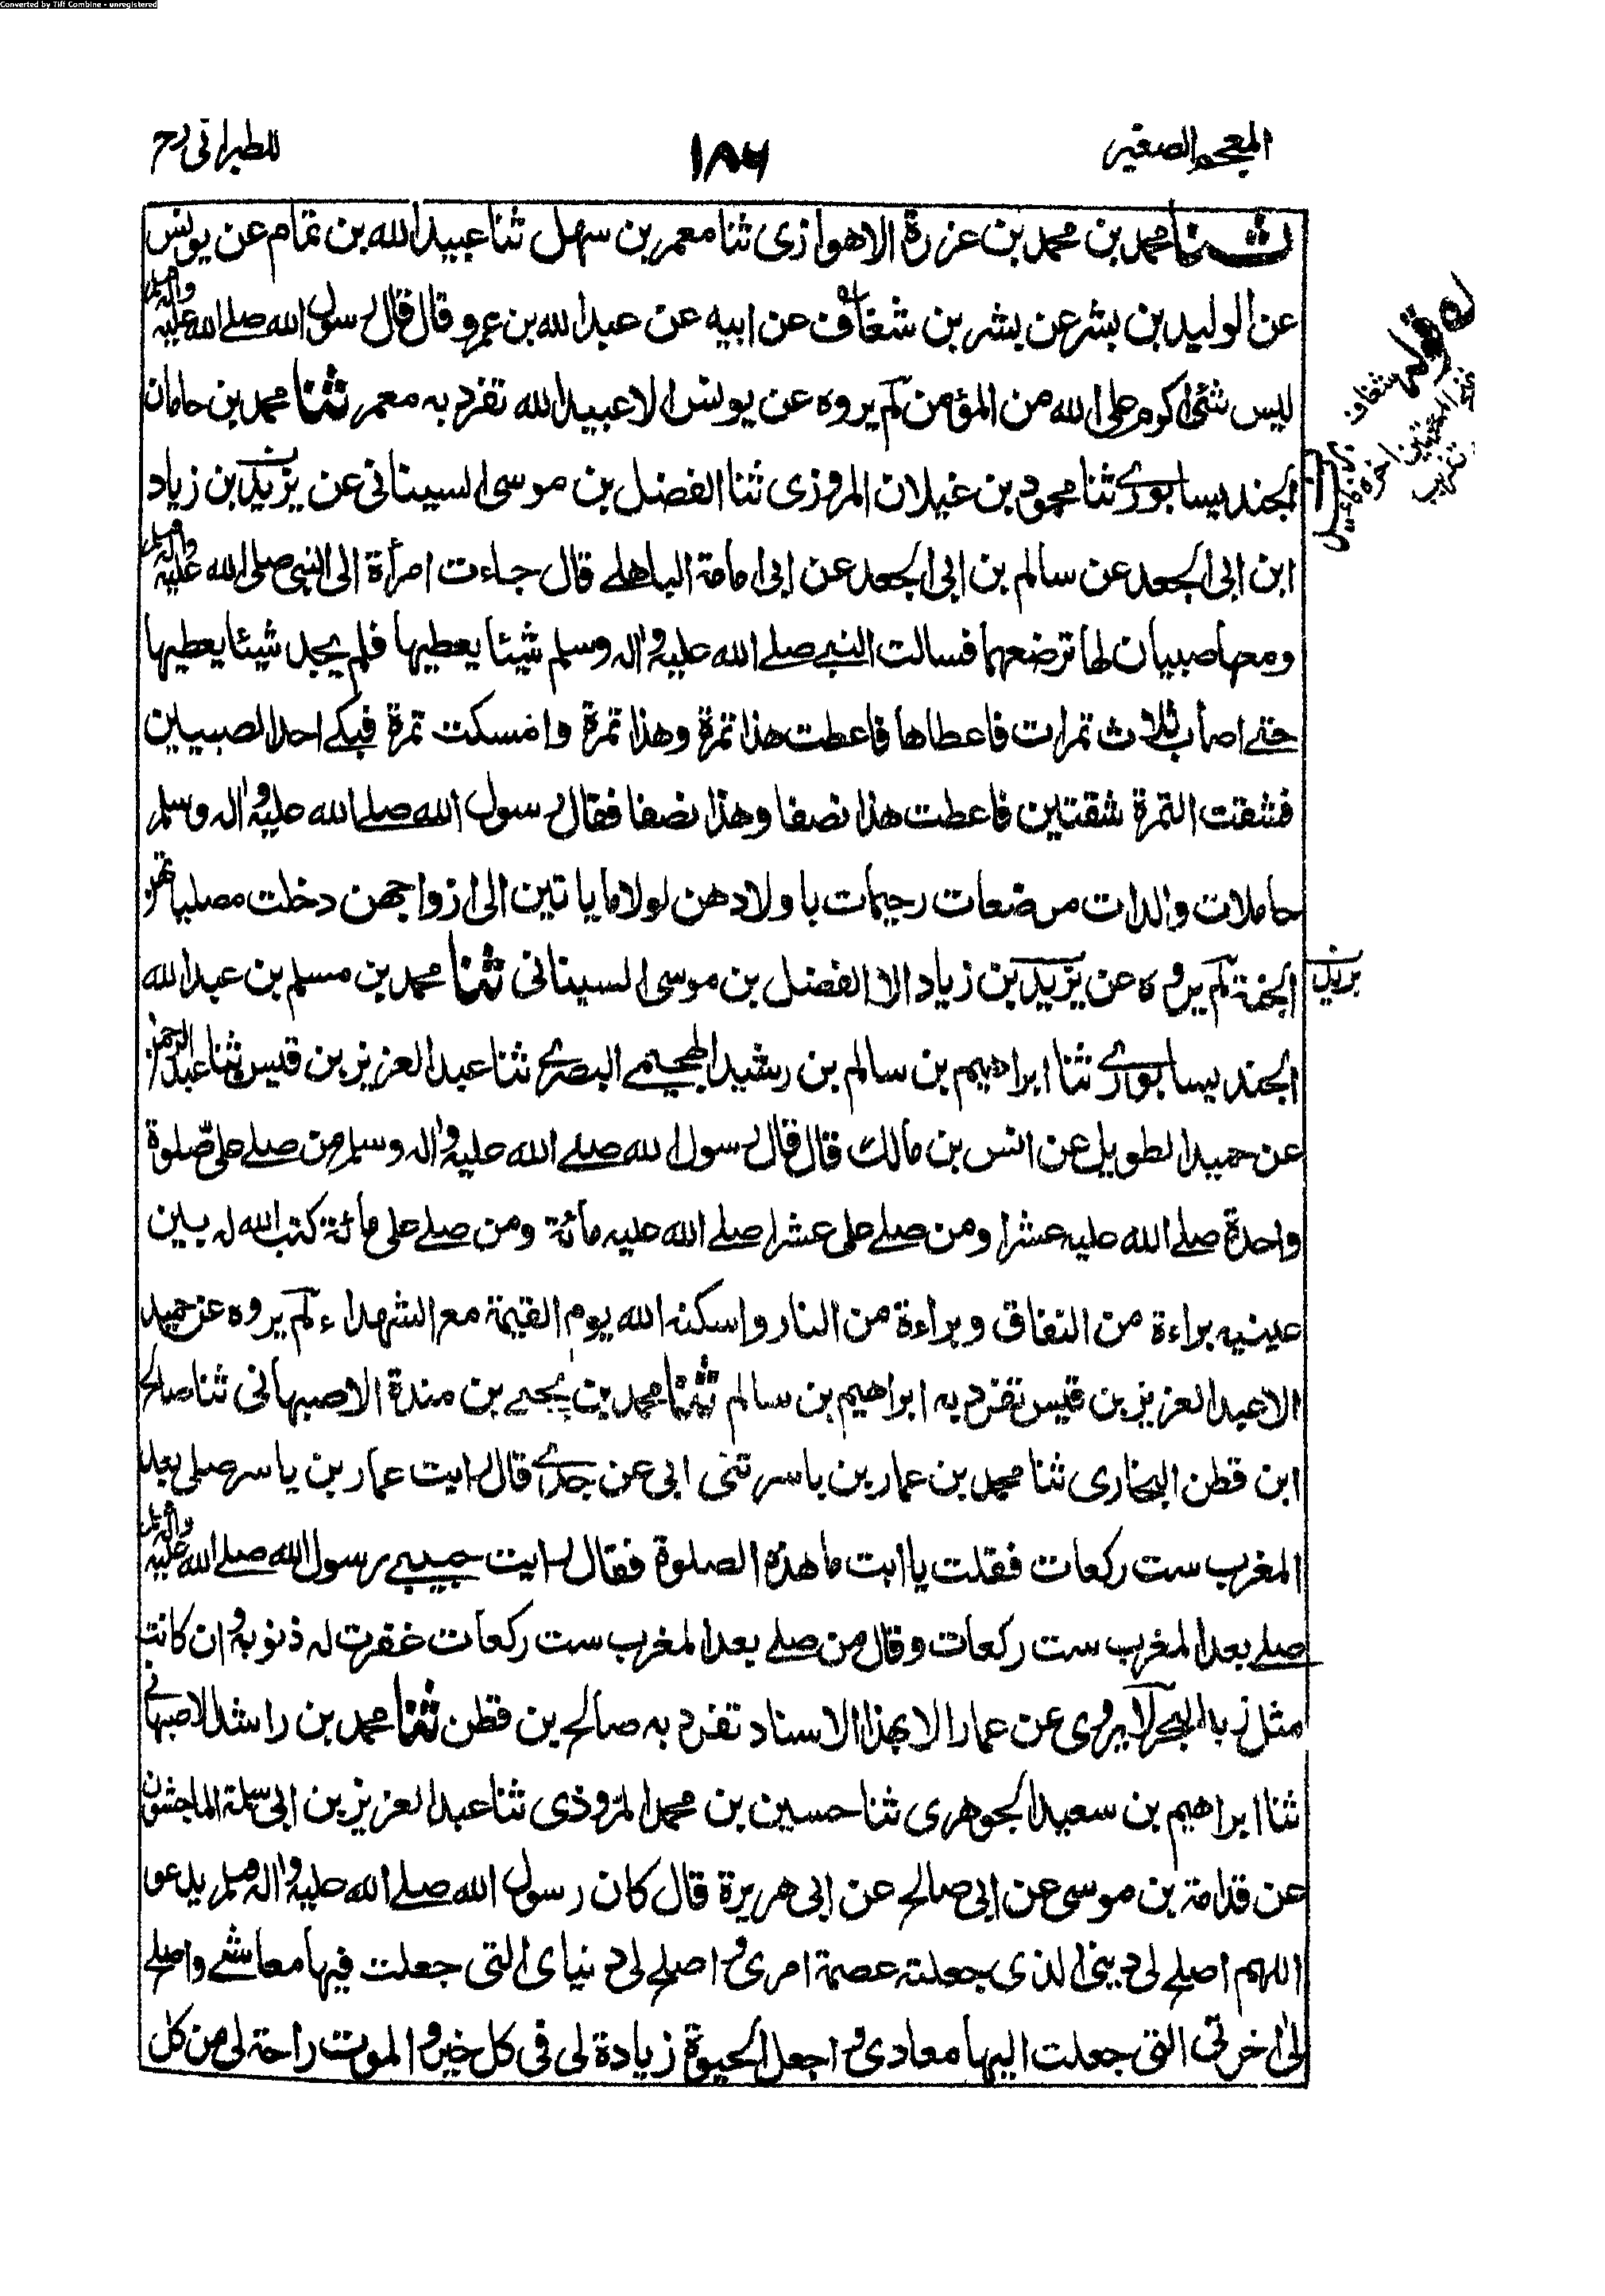 Converted by Tiff Combine - unregistered
المعجم الصغير
١٨٦
للطبرانی رح
ثنا محمد بن محمد بن عزرة الاهوازی ثنا معمر بن سهل ثنا عبيد الله بن تمام عن يونس
عن الوليد بن بشر عن بشر بن شغاف عن ابيه عن عبد الله بن عمرو قال قال رسول الله صلے الله عليه واله وسلم
ليس شئ اكرم علی الله من المؤمن لم يروه عن يونس الا عبيد الله تفرد به معمر ثنا محمد بن حامان
الجنديسابوری ثنا محمود بن غيلان المروزی ثنا الفضل بن موسی السينانی عن يزيد بن زياد
ابن ابی الجعد عن سالم بن ابی الجعد عن ابی امامة الباهلے قال جاءت امرأة الی النبی صلی الله عليه واله وسلم
ومعها صبيان لها ترضعهما فسالت النبے صلے الله عليه واله وسلم شيئا يعطيها فلم يجد شيئا يعطيها
حتے اصاب ثلاث تمرات فاعطاها فاعطت هذا تمرة وهذا تمرة وامسكت تمرة فبكے احد الصبيين
فشقت التمرة شقتين فاعطت هذا نصفا وهذا نصفا فقال رسول الله صلے الله عليه واله وسلم
حاملات والدات مرضعات رحيمات باولادهن لولا ما ياتين الی ازواجهن دخلت مصلياتهن
الجنة لم يروه عن يزيد بن زياد الا الفضل بن موسی السينانی ثنا محمد بن مسلم بن عبد الله
يزيد
الجنديسابوری ثنا ابراهيم بن سالم بن رشيد الهجيمے البصری ثنا عبد العزيز بن قيس ثنا عبد الرحمن
عن حميد الطويل عن انس بن مالك قال قال رسول الله صلے الله عليه واله وسلم من صلے علی صلوة
واحدة صلے الله عليه عشرا ومن صلے علی عشرا صلے الله عليه مائة ومن صلے علی مائة كتب الله له بين
عينيه براءة من النفاق وبراءة من النار واسكنه الله يوم القيمة مع الشهداء لم يروه عن حميد
الا عبد العزيز بن قيس تفرد به ابراهيم بن سالم ثنا محمد بن يحيے بن مندة الاصبهانی ثنا صالح
ابن قطن البخاری ثنا محمد بن عمار بن ياسر ثنی ابی عن جدی قال رايت عمار بن ياسر صلی بعد
المغرب ست ركعات فقلت يا ابت ما هذه الصلوة فقال رايت حبيبے رسول الله صلے الله عليه واله وسلم
صلے بعد المغرب ست ركعات وقال من صلے بعد المغرب ست ركعات غفرت له ذنوبه وان كانت
مثل زبد البحر لا يروی عن عمار الا بهذا الاسناد تفرد به صالح بن قطن ثنا محمد بن راشد الاصبهانے
ثنا ابراهيم بن سعيد الجوهری ثنا حسين بن محمد المروذی ثنا عبد العزيز بن ابی سلمة الماجشون
عن قدامة بن موسی عن ابی صالح عن ابی هريرة قال كان رسول الله صلے الله عليه واله وسلم يدعو
اللهم اصلح لی دينی الذی جعلته عصمة امری واصلح لی دنيای التی جعلت فيها معاشے واصلح
لی اخرتی التی جعلت اليها معادی واجعل الحيوة زيادة لی فی كل خير والموت راحة لی من كل